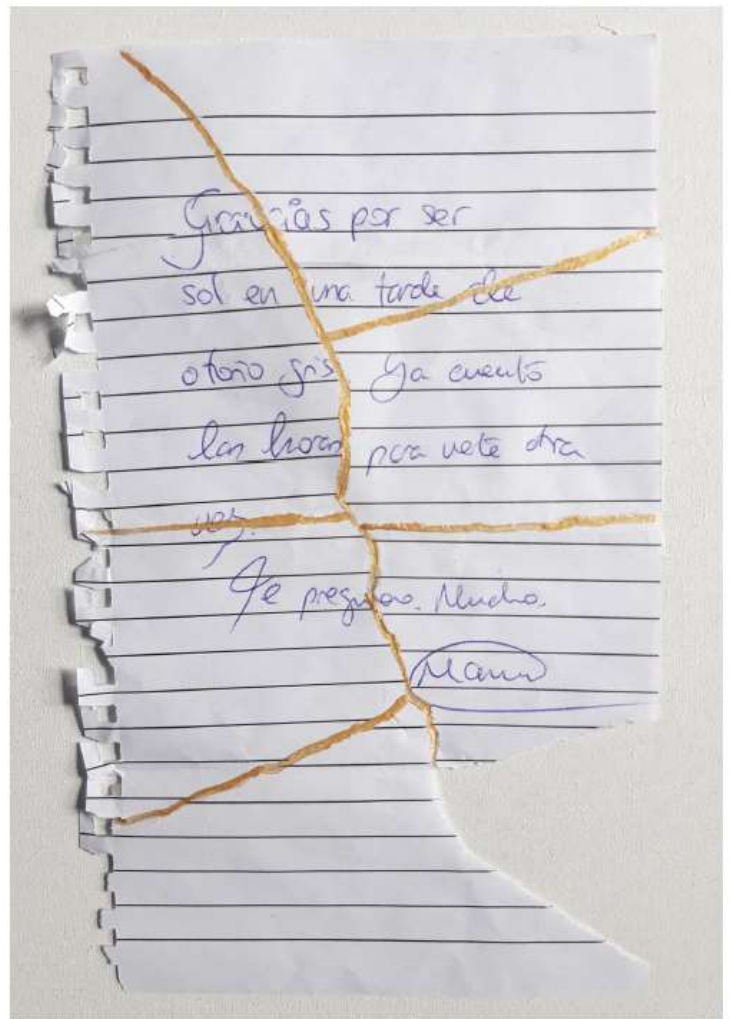 Gracias por ser
sol en una tarde de
otoño gris Ya cuento
las horas para verte otra
vez.
Te pregunto. Mucho.